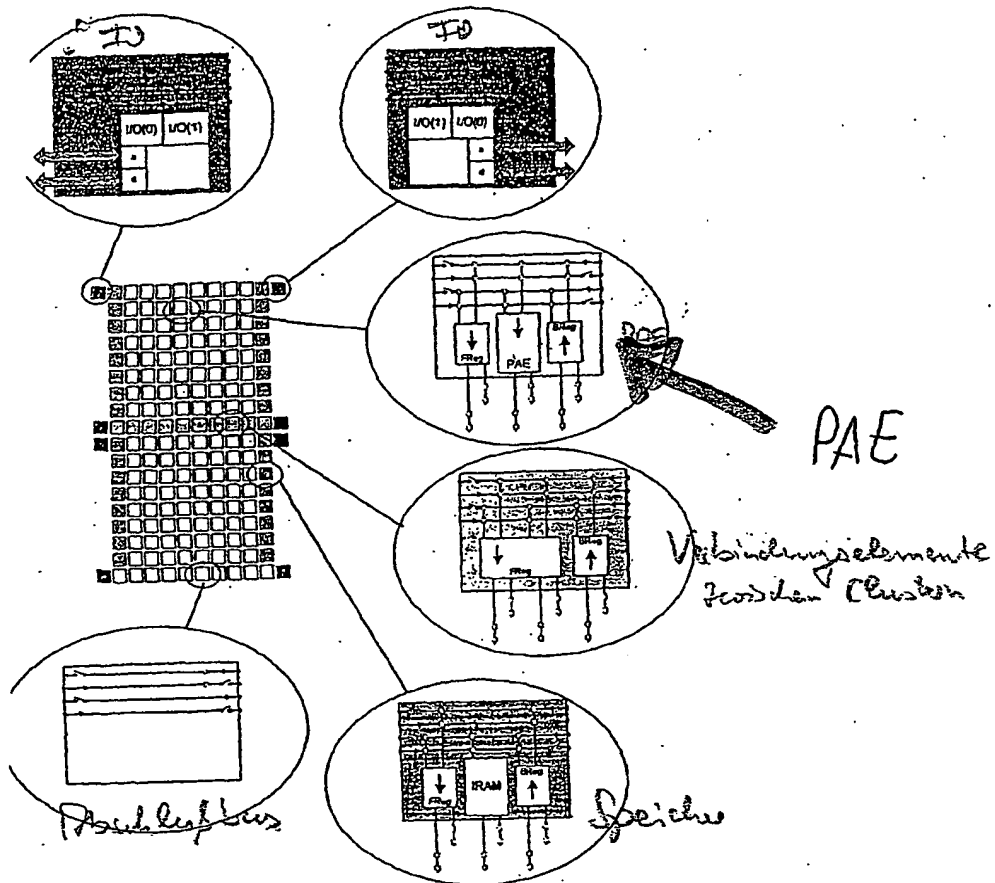 IO
IO
I/O(0) I/O(1)
I/O(1) I/O(0)
FReg
PAE
BReg
PAE
FReg
BReg
Verbindungselemente
zwischen Clustern
FReg
IRAM
BReg
Speicher